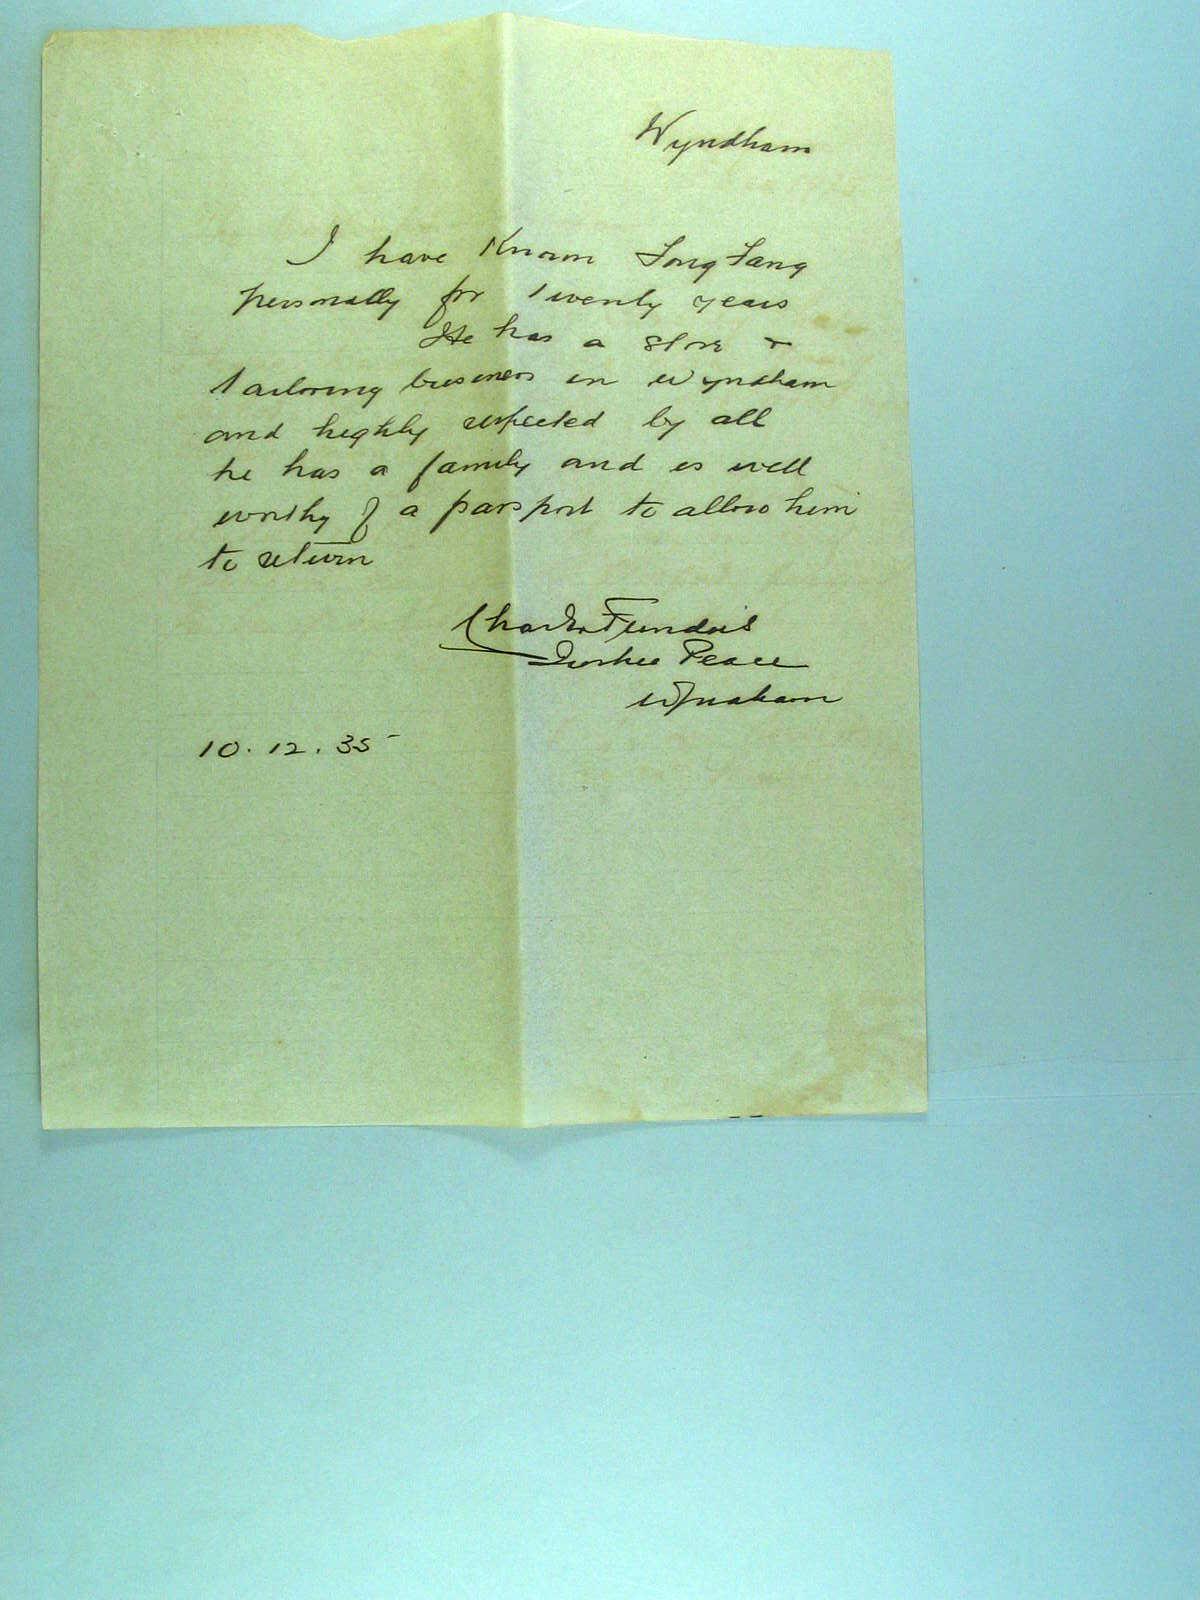 Wyndham
I have Known Fong Fang
personally for twenty years
He has a store &
tailoring business in Wyndham
and highly respected by all
he has a family and is well
worthy of a passport to allow him
to return
Charles
Justice Peace
Wyndham
10.12.35